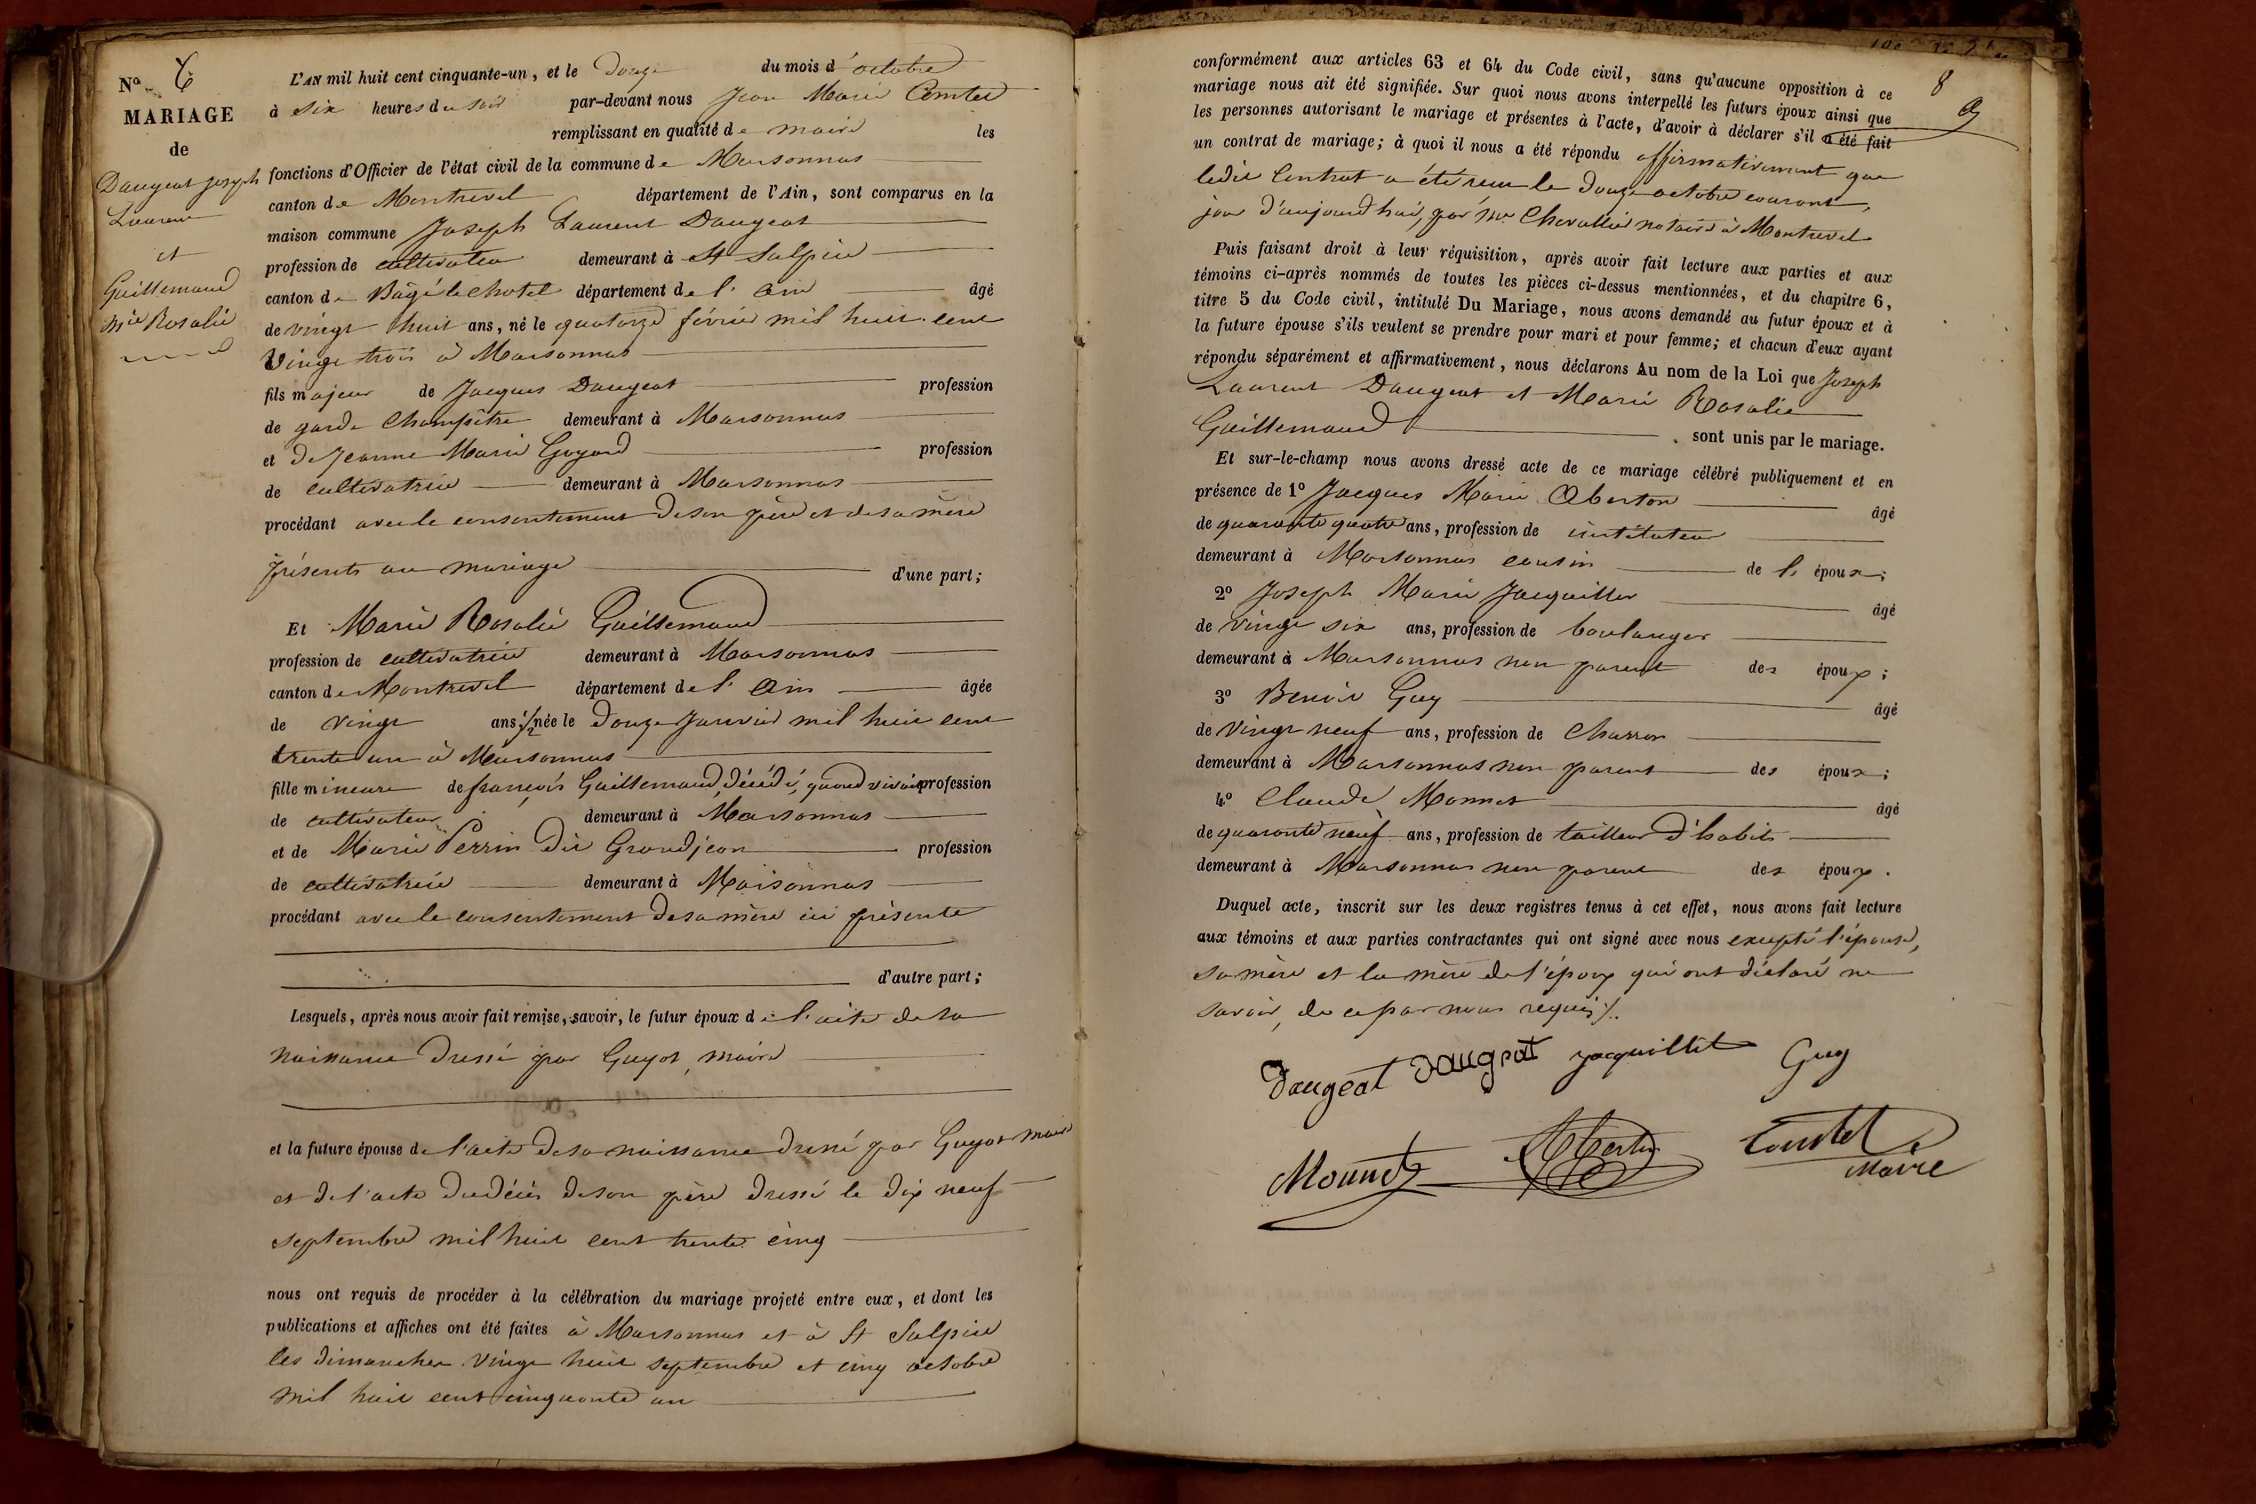 N° 6
MARIAGE
de
Daugeat Joseph
Laurent
et
Guillemaud
Mie Rosalie
L'AN mil huit cent cinquante-un, et le Douze du mois d'octobre
à six heures du soir par-devant nous Jean Marie
remplissant en qualité de maire les
fonctions d'Officier de l'état civil de la commune de Marsonnas
canton de Montrevel département de l'Ain, sont comparus en la
maison commune Joseph Laurent Daugeat
profession de cultivateur demeurant à St Sulpice
canton de Bâgé le chatel département de l'Ain âgé
de vingt huit ans, né le quatorze février mil huit cent
vingt trois à Marsonnas
fils majeur de Jacques Daugeat profession
de garde Champêtre demeurant à Marsonnas
et de Jeanne Marie Guyard profession
de cultivatrice demeurant à Marsonnas
procédant avec le consentement de son père et de sa mère
présents au mariage d'une part;
Et Marie Rosalie Guillemaud
profession de cultivatrice demeurant à Marsonnas
canton de Montrevel département de l'Ain âgée
de vingt ans 1/2 née le Douze Janvier mil huit cent
trente un à Marsonnas
fille mineure de françois Guillemaud, décédé, quand vivait profession
de cultivateur demeurant à Marsonnas
et de Marie Perrin dit Grandjean profession
de cultivatrice demeurant à Marsonnas
procédant avec le consentement de sa mère ici présente
d'autre part;
Lesquels, après nous avoir fait remise, savoir, le futur époux de l'acte de sa
naissance dressé par Guyot, maire
et la future épouse de l'acte de sa naissance dressé par Guyot maire
et de l'acte du décès de son père dressé le dix neuf
septembre mil huit cent trente cinq
nous ont requis de procéder à la célébration du mariage projeté entre eux, et dont les
publications et affiches ont été faites à Marsonnas et à St Sulpice
les dimanches vingt huit septembre et cinq octobre
mil huit cent cinquante un
8
conformément aux articles 63 et 64 du Code civil, sans qu'aucune opposition à ce
mariage nous ait été signifiée. Sur quoi nous avons interpellé les futurs époux ainsi que
les personnes autorisant le mariage et présentes à l'acte, d'avoir à déclarer s'il a été fait
un contrat de mariage; à quoi il nous a été répondu affirmativement que
ledit Contrat a été reçu le douze octobre courant,
jour d'aujourd'hui, par Me Chevallier notaire à Montrevel
Puis faisant droit à leur réquisition, après avoir fait lecture aux parties et aux
témoins ci-après nommés de toutes les pièces ci-dessus mentionnées, et du chapitre 6,
titre 5 du Code civil, intitulé Du Mariage, nous avons demandé au futur époux et à
la future épouse s'ils veulent se prendre pour mari et pour femme; et chacun d'eux ayant
répondu séparément et affirmativement, nous déclarons Au nom de la Loi que Joseph
Laurent Daugeat et Marie Rosalie
Guillemaud sont unis par le mariage.
Et sur-le-champ nous avons dressé acte de ce mariage célébré publiquement et en
présence de 1° Jacques Marie Oberton âgé
de quarante quatre ans, profession de instituteur
demeurant à Marsonnas cousin de l'époux;
2° Joseph Marie Jacquillet âgé
de vingt six ans, profession de boulanger
demeurant à Marsonnas non parent des époux;
3° Benoit Guy âgé
de vingt neuf ans, profession de Charron
demeurant à Marsonnas non parent des époux;
4° Claude Monnet âgé
de quarante neuf ans, profession de tailleur d'habits
demeurant à Marsonnas non parent des époux.
Duquel acte, inscrit sur les deux registres tenus à cet effet, nous avons fait lecture
aux témoins et aux parties contractantes qui ont signé avec nous excepté l'épouse,
sa mère et la mère de l'époux qui ont déclaré ne
savoir, de ce par nous requis /.
Daugeat Daugeat Jacquillet Guy
Monnet
Maire